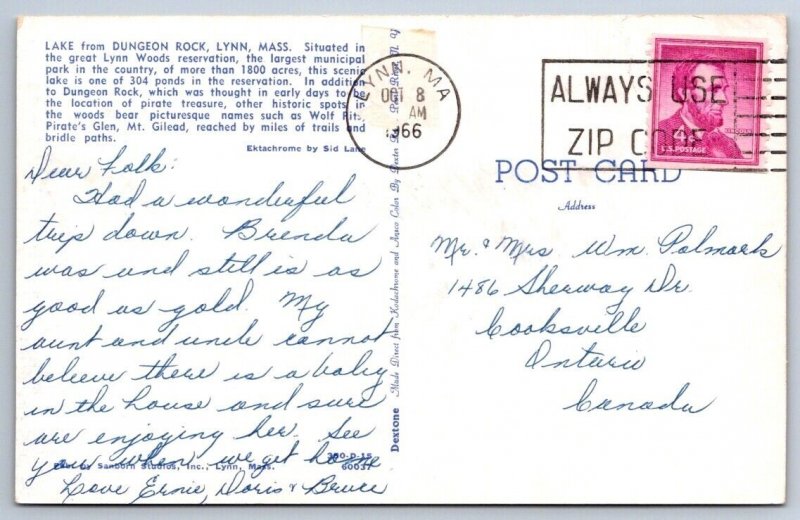 LAKE from DUNGEON ROCK, LYNN, MASS. Situated in
the great Lynn Woods reservation, the largest municipal
park in the country, of more than 1800 acres, this scenic
lake is one of 304 ponds in the reservation. In addition
to Dungeon Rock, which was thought in early days to be
the location of pirate treasure, other historic spots in
the woods bear picturesque names such as Wolf Pits,
Pirate's Glen, Mt. Gilead, reached by miles of trails and
bridle paths.
Ektachrome by Sid Lane
Dear Folk:
Had a wonderful
trip down. Brenda
was and still is as
good as gold. My
aunt and uncle cannot
believe there is a baby
in the house and sure
are enjoying her. See
you when we get home
by Sanborn Studios, Inc., Lynn, Mass.
300-P-15
60037
Love Ernie, Doris & Bruce
Dextone
Made Direct from Kodachrome and Ansco Color By Dexter
LYNN, MA
OCT 8
AM
1966
ALWAYS USE
ZIP CODE
4¢
U.S. POSTAGE
POST CARD
Address
Mr. & Mrs Wm. Palmark
1486 Sherway Dr.
Cooksville
Ontario
Canada